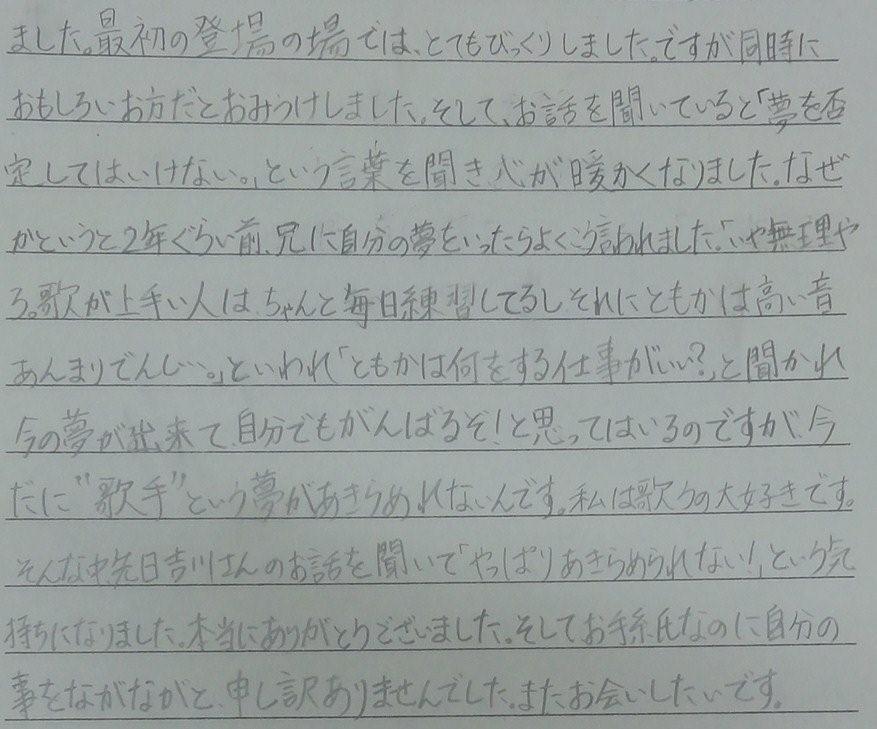 ました。最初の登場の場では、とてもびっくりしました。ですが同時に
おもしろいお方だとおみうけしました。そして、お話を聞いていると「夢を否
定してはいけない。」という言葉を聞き心が暖かくなりました。なぜ
かというと2年ぐらい前、兄に自分の夢をいったらよくこう言われました。「いや無理や
ろ。歌が上手い人は、ちゃんと毎日練習してるしそれにともかは高い音
あんまりでんし…。」といわれ「ともかは何をする仕事がいい?」と聞かれ
今の夢が出来て、自分でもがんばるぞ!と思ってはいるのですが、今
だに"歌手"という夢があきらめれないんです。私は歌うの大好きです。
そんな中先日吉川さんのお話を聞いて「やっぱりあきらめられない!」という気
持ちになりました。本当にありがとうございました。そしてお手紙なのに自分の
事をながながと、申し訳ありませんでした。またお会いしたいです。